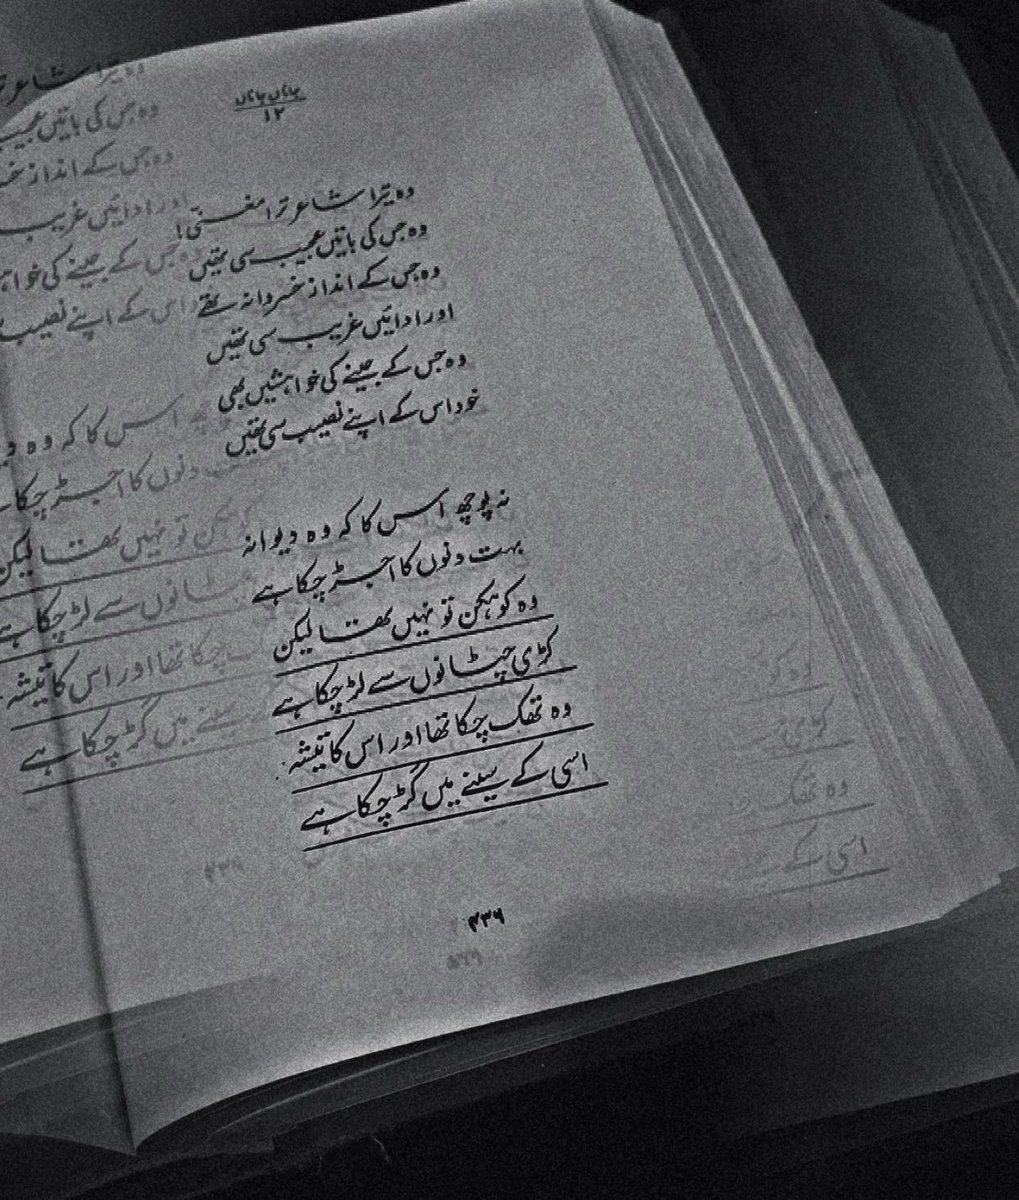 جاناں جاناں
۱۲
وہ تیرا شاعر ترا مغنّی!
وہ جس کی باتیں عجیب سی تھیں
وہ جس کے انداز خسروانہ تھے
اور ادائیں غریب سی تھیں
وہ جس کے جینے کی خواہشیں بھی
خود اس کے اپنے نصیب سی تھیں
نہ پوچھ اس کا کہ وہ دیوانہ
بہت دنوں کا اجڑ چکا ہے
وہ کوہکن تو نہیں تھا لیکن
کڑی چٹانوں سے لڑ چکا ہے
وہ تھک چکا تھا اور اس کا تیشہ
اسی کے سینے میں گڑ چکا ہے
۴۳۶